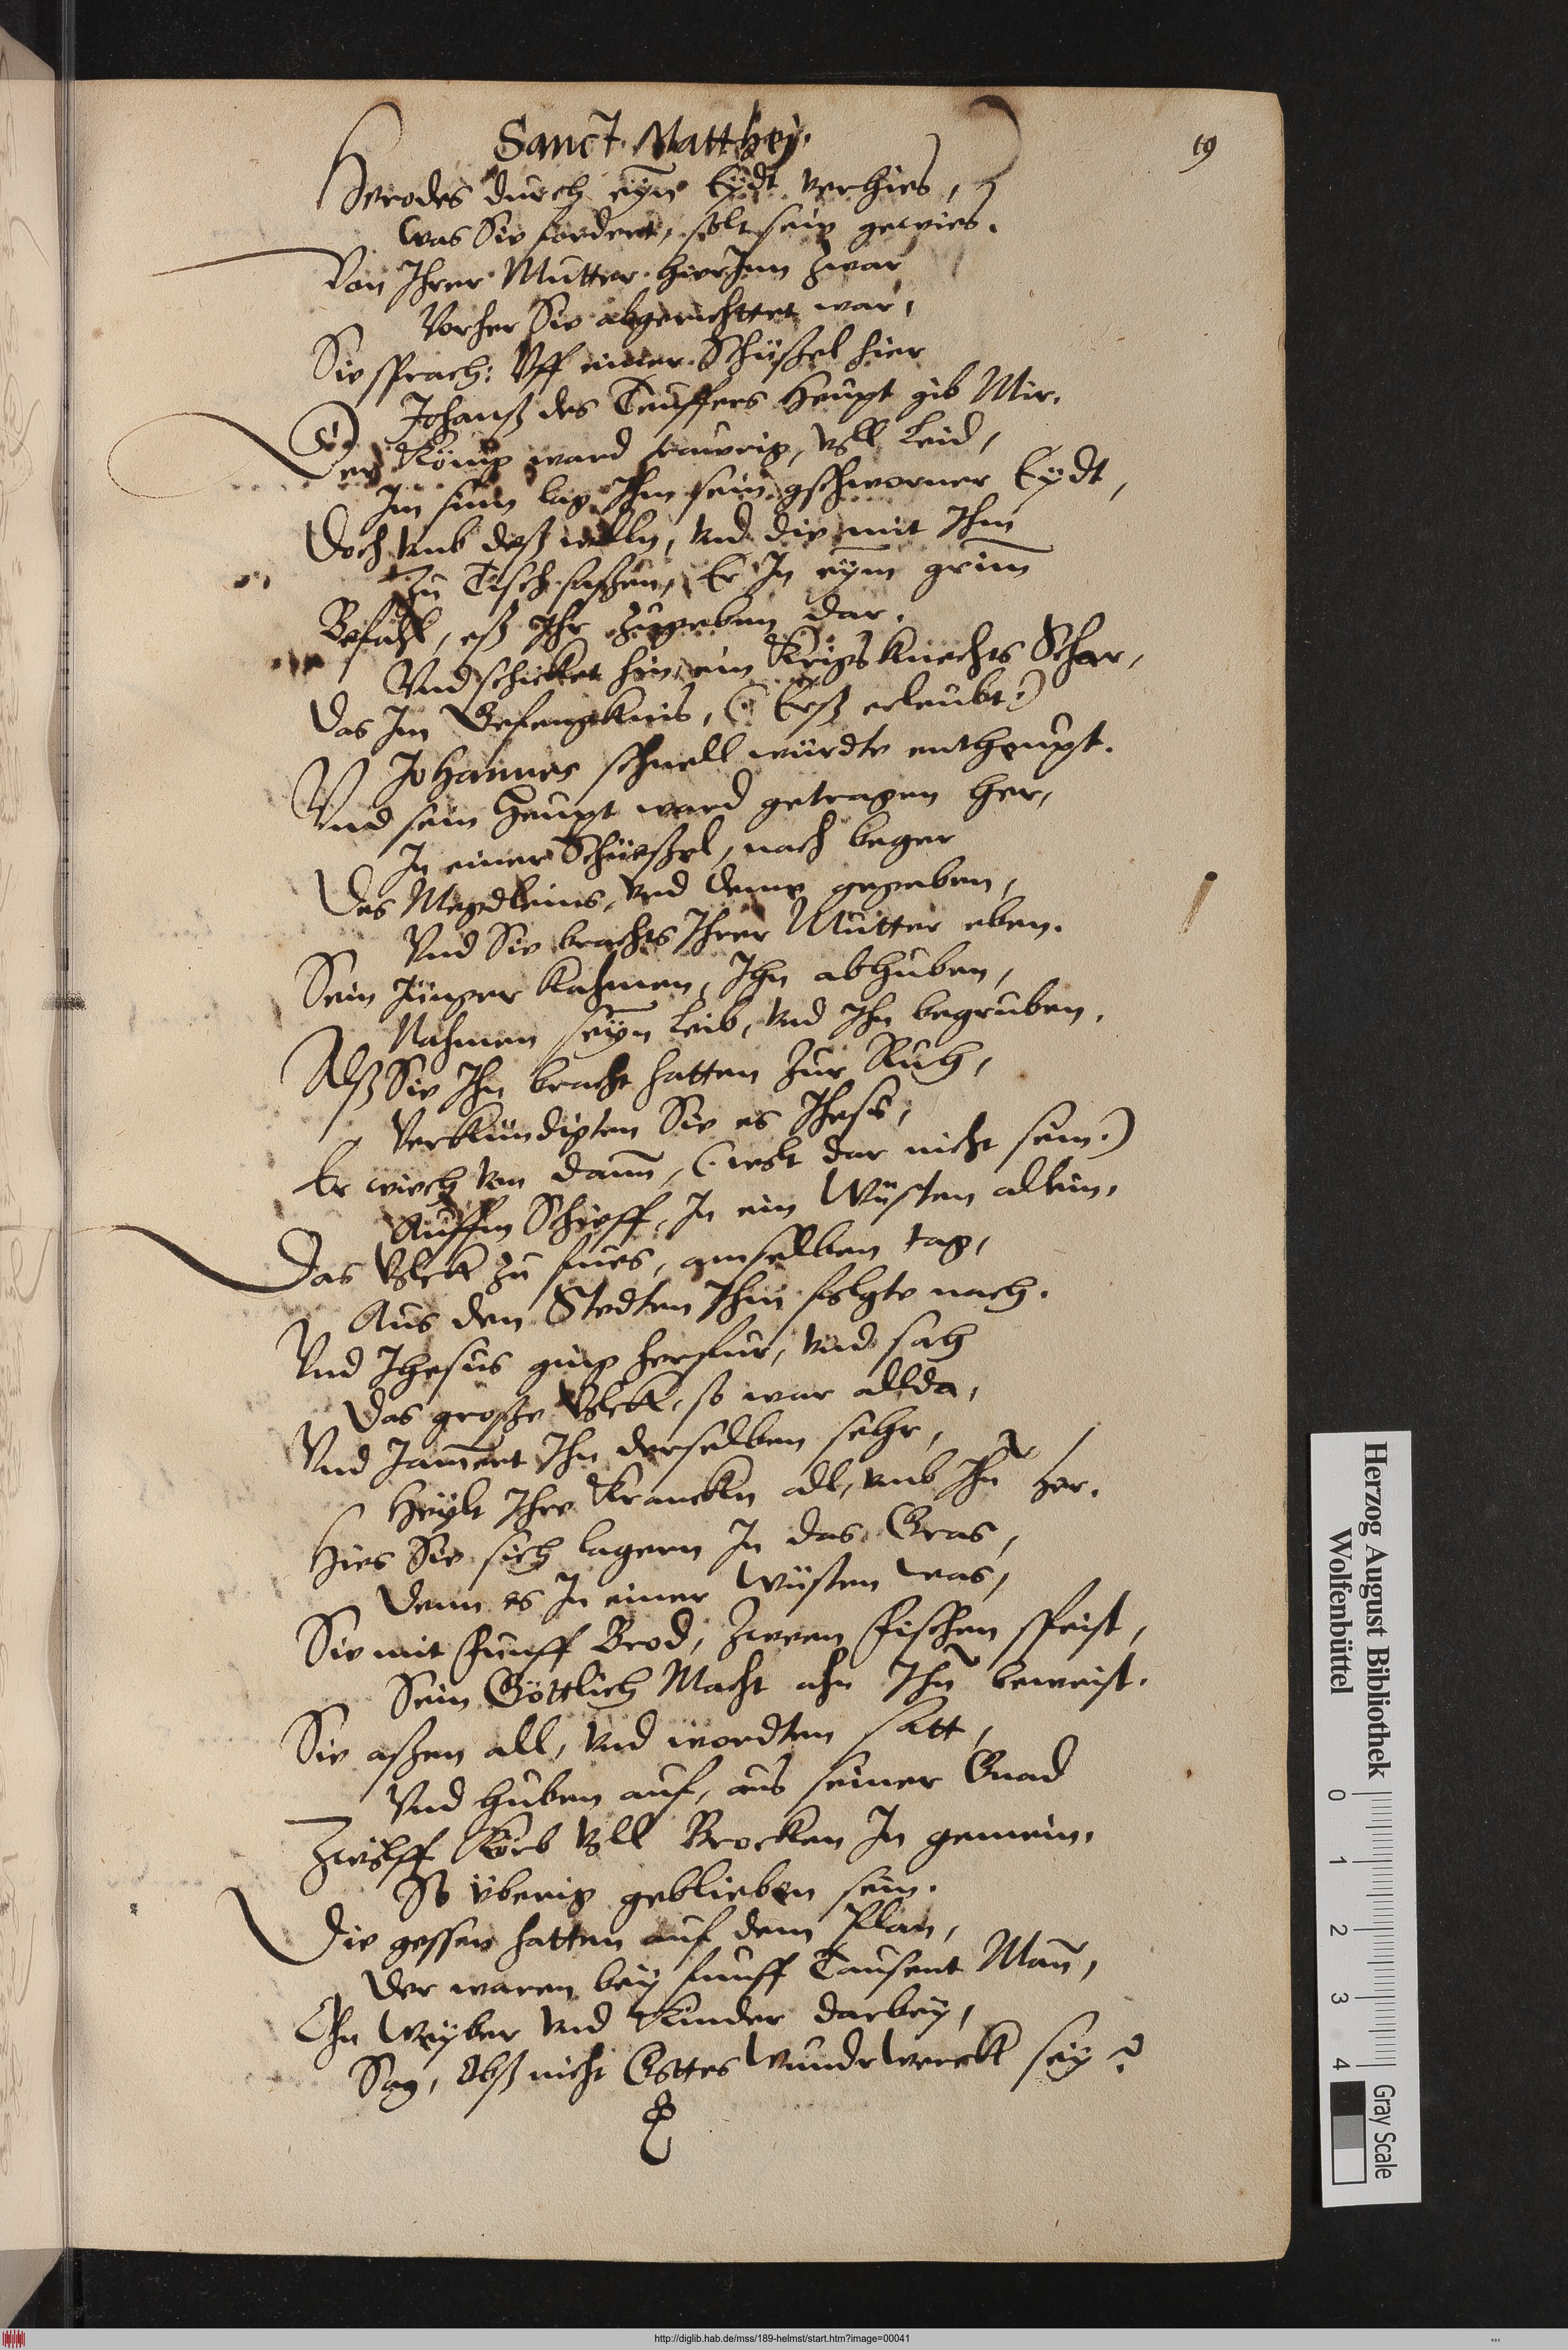 Sanct. Matthej.
19
Herodes durch eÿn Eÿdt verhies,
Was Sie fordert, solt sein gewies.
Von Ihrer Mutter hierinn zwar
Vorher Sie abgerichttet war,
Sie sprach: Uff einer Schüßel hier
Johanß des Teuffers Heupt gib Mir.
Der König ward trawrig, voll Leid,
Im sinn lag Ihm sein gschworner Eÿdt,
Doch umb deß willn, und die mit Ihm
Zu Tisch saßen, Er In eÿm grim̄
Befahl, eß Ihr zugeben dar.
Und schicket hin, ein Krigsknechts Schar,
Das Im Gefengknis, (: Erß erleubt:)
Johannes schnell würdte entheupt.
Und sein Heupt ward getragen her,
In einer Schüeßel, nach beger
Des Megdleins, und deme gegeben,
Und Sie brachts Ihrer Mutter eben.
Sein Jünger kahmen, Ihn abhuben,
Nahmen seÿn Leib, und Ihn begruben.
Alß Sie Ihn bracht hatten zur Ruh,
Verkündigten Sie es Jhesu,
Er wiech von dann̄, (: wolt dar nicht sein:)
Auffm Schieff, In ein Wüsten allein.
Das Volck zu fues, am selben tag,
Aus den Stedten Ihm folgte nach.
Und Jhesus ging herfur, und sah
Das große Volck, so war allda,
Und Jam̄ert Ihn derselben sehr,
Heÿlt Ihre Krancken all, umb Ihn her.
Hies Sie sich lagern In das Gras,
Denn es In einer Wüsten was,
Sie mit funff Brod, zween fischen speist,
Sein Göttlich Macht ahn Ihn beweist.
Sie aßen all, und wordten satt,
Und huben auf, aus seiner Gnad
Zwölff Körb voll Brocken In gemein.
So überig geblieben sein.
Die gessen hatten auf dem Plan,
Der waren beÿ funff Tausent Man̄,
Ohn Weÿber und Kinder darbeÿ,
Sag, Obß nicht Gottes Wunderwerck seÿ?
Herzog August Bibliothek
Wolfenbüttel
0 1 2 3 4
Gray Scale
http://diglib.hab.de/mss/189-helmst/start.htm?image=00041